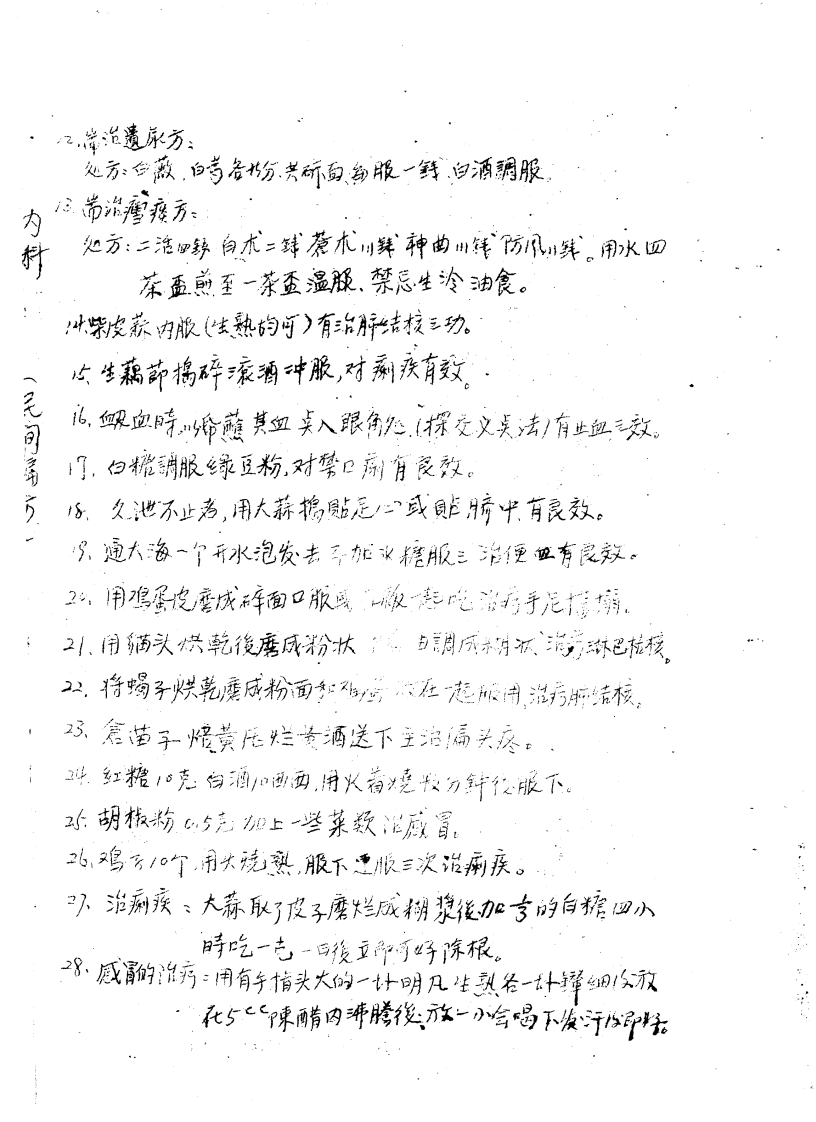 内科
(民间偏方)
12.常治遺尿方:
处方:白薇、白芍各十分、共研面每服一錢、白酒調服
13.常治瘧疾方:
处方:二活四錢 白术二錢 蒼术川錢 神曲川錢 防风川錢。用水四
茶盃煎至一茶盃溫服、禁忌生冷油食。
14.紫皮蒜内服(生熟均可)有治肺结核之功。
15.生藕節搗碎滚酒冲服,对痢疾有效。
16.衄血時,蘸其血点入眼角处(採交叉点法)有止血之效。
17、白糖調服绿豆粉,对禁口痢有良效。
18、久泄不止者,用大蒜搗貼足心或貼脐中有良效。
19、通大海一个开水泡发去子加冰糖服之治便血有良效。
20、用鸡蛋皮磨成碎面口服 一起吃治疗手足
21、用猫头烘乾後磨成粉状 調成糊状治疗淋巴核。
22、将蝎子烘乾磨成粉面 在一起服用,治疗肺结核。
23、 黄酒送下主治偏头疼。
24.红糖10克白酒10西西,用火着燒 分鈡後服下。
25、胡椒粉0.5克加上一些菜类治感冒。
26、鸡子10个用火烧熟,服下連服三次治痢疾。
27、治痢疾:大蒜取了皮子磨烂成糊漿後加 的白糖四小
時吃一次 一日後立即可好除根。
28、感冒的治疗:用有手指头大的一块明凡生熟各一块 细後放
在5cc陳醋内沸腾後,放一小会喝下发汗後即好。